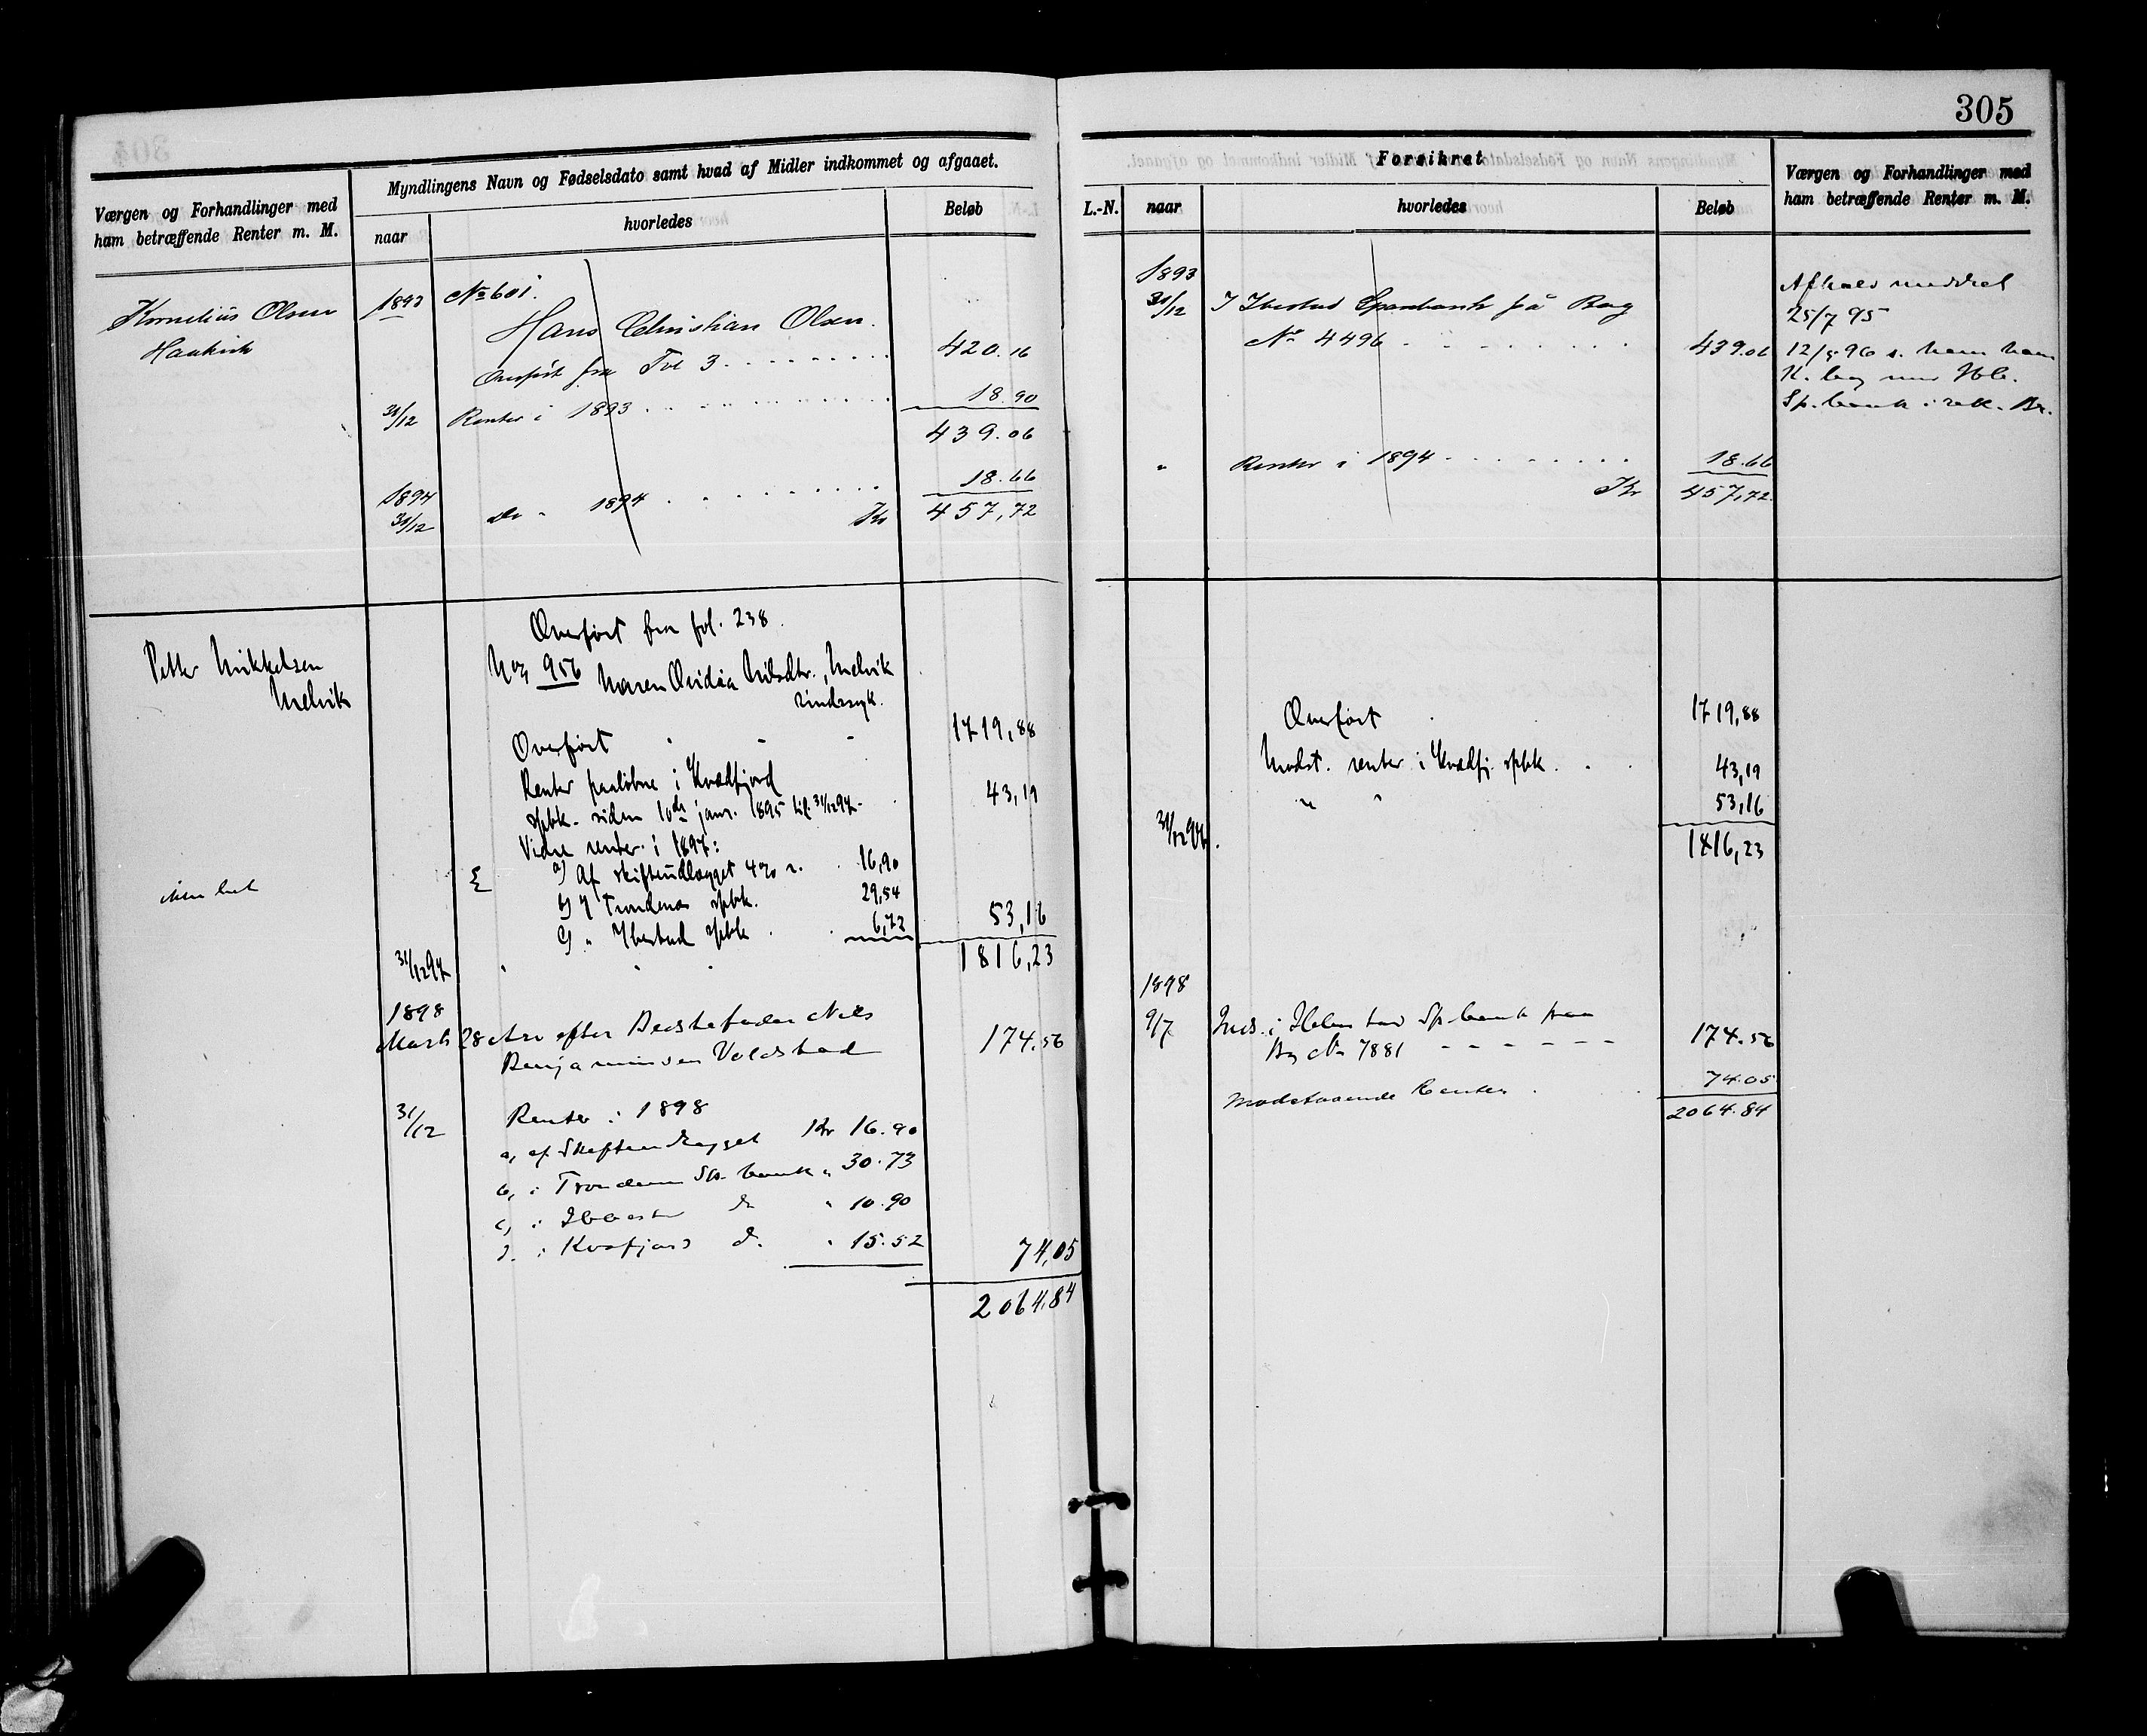 305
Værgen og Forhandlinger med
ham betræffende Renter m. M.
Myndlingens Navn og Fødselsdato samt hvad af Midler indkommet og afgaaet.
naar
hvorledes
Beløb
Kornelius Olsen
1893
No 601.
Hans Christian Olsen.
Overført fra Fol 3 . . . . . . . . . 420.16
31/12 Renter i 1893 . . . . . . . . . . 18.90
439.06
1894
31/12 do " 1894 . . . . . . . . . 18.66
Kr 457,72
Overført fra fol. 238.
Petter Mikkelsen
Melvik
No 956 Maren Ovidia Nilsdtr., Melvik
sindssyk.
Overført 1719,88
Renter paaløbne i Kvædfjord
spbk. siden 10de janr. 1895 til 31/12 97. 43,19
Videre renter i 1897:
a) Af skifteudlægget 4% r. 16,90
b) I Trondenæs spbk. 29,54
c) " Ibestad spbk. 6,72 53,16
31/12 97 1816,23
1898
Marts 28 Arv efter Bedstefader Nils
Benjaminsen Voldstad 174.56
31/12 Renter i 1898
a, af Skifteudlægget Kr 16.90
b, i Trondenes Sp. bank " 30.73
c, i Ibbestad do " 10.90
d. i Kvæfjord d. " 15.52 74,05
2064.84
Forsikret
L.-N.
naar
hvorledes
Beløb
Værgen og Forhandlinger med
ham betræffende Renter m. M.
1893
31/12 I Ibestad Sparebank på Bog
No 4496 . . . . . . . . 439.06
" Renter i 1894 . . . . . . . . 18.66
Kr 457,72
Afkald meddelt
25/7 95
Overført 1719,88
Modst. renter i Kvædfj. spbk. . . 43,19
" " 53,16
31/12 97. 1816,23
1898
9/7 Inds. i Ibbestad Sp.bank paa
Bg No 7881 - - - - - - 174.56
Modstaaende Renter . 74.05
2064.84